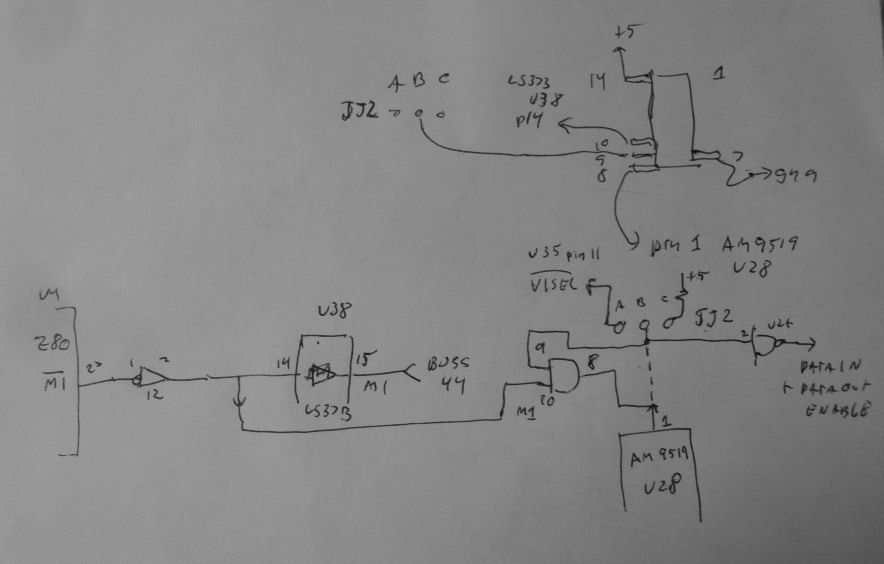 +5
A B C
JJ2
LS373
U38
p14
14
1
10
9
8
7
gnd
pin 1 AM9519
U28
U35 pin 11
V1SEL
+5
A B C
JJ2
U4
Z80
M1
1
2
12
U38
14
15
LS373
M1
BUSS
44
9
8
10
M1
2
DATA IN
+ DATA OUT
ENABLE
1
AM 9519
U28